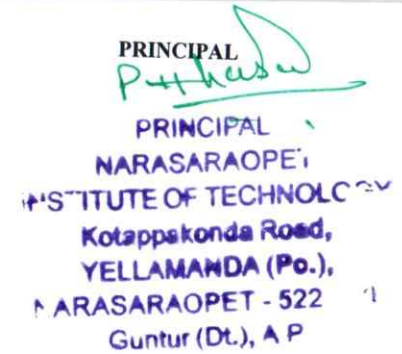 PRINCIPAL
PRINCIPAL
NARASARAOPET
INSTITUTE OF TECHNOLOGY
Kotappakonda Road,
YELLAMANDA (Po.),
NARASARAOPET - 522
Guntur (Dt.), A P